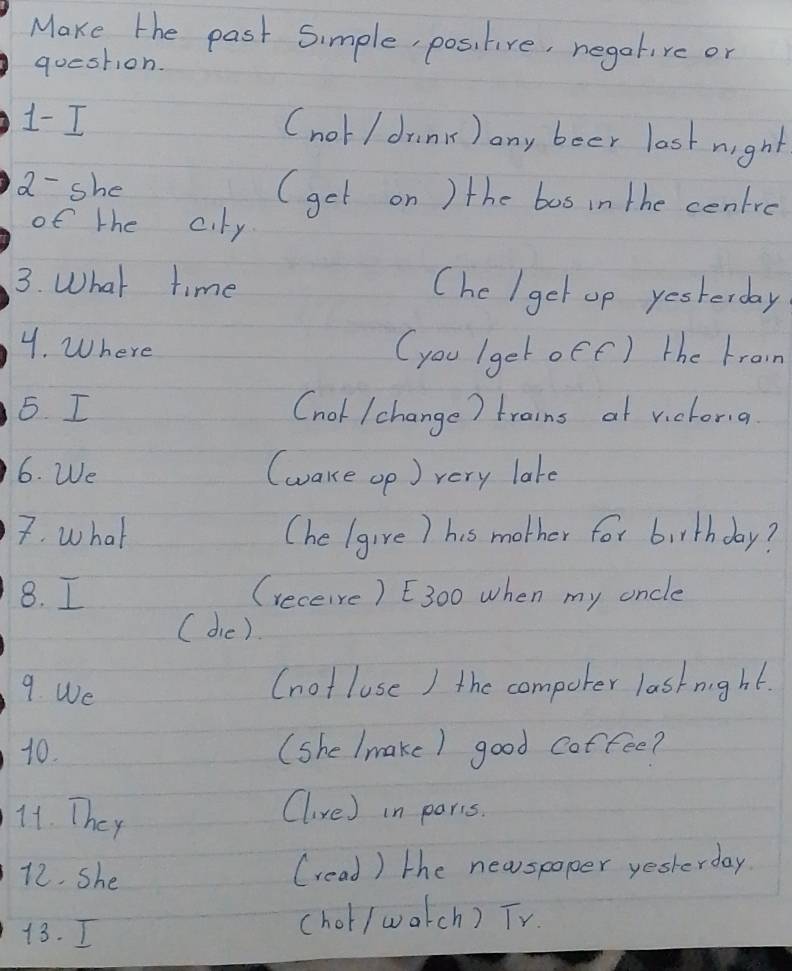 Make the past simple, positive, negative or
question.
1- I (not/drink) any beer last night.
2- she (get on) the bus in the centre
of the city.
3. What time (he/get up yesterday.
4. Where (you/get off) the train
5. I (not/change) trains at victoria.
6. We (wake up) very late
7. What (he/give) his mother for birthday?
8. I (receive) £300 when my uncle
(die).
9. We (not/use) the computer last night.
10. (she/make) good coffee?
11. They (live) in paris.
12. she (read) the newspaper yesterday.
13. I (not/watch) Tv.